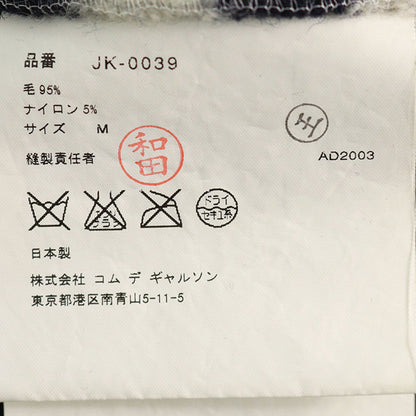 品番 JK-0039
毛 95%
ナイロン 5%
サイズ M
縫製責任者
和田
AD2003
ドライ
セキユ系
日本製
株式会社 コム デ ギャルソン
東京都港区南青山5-11-5